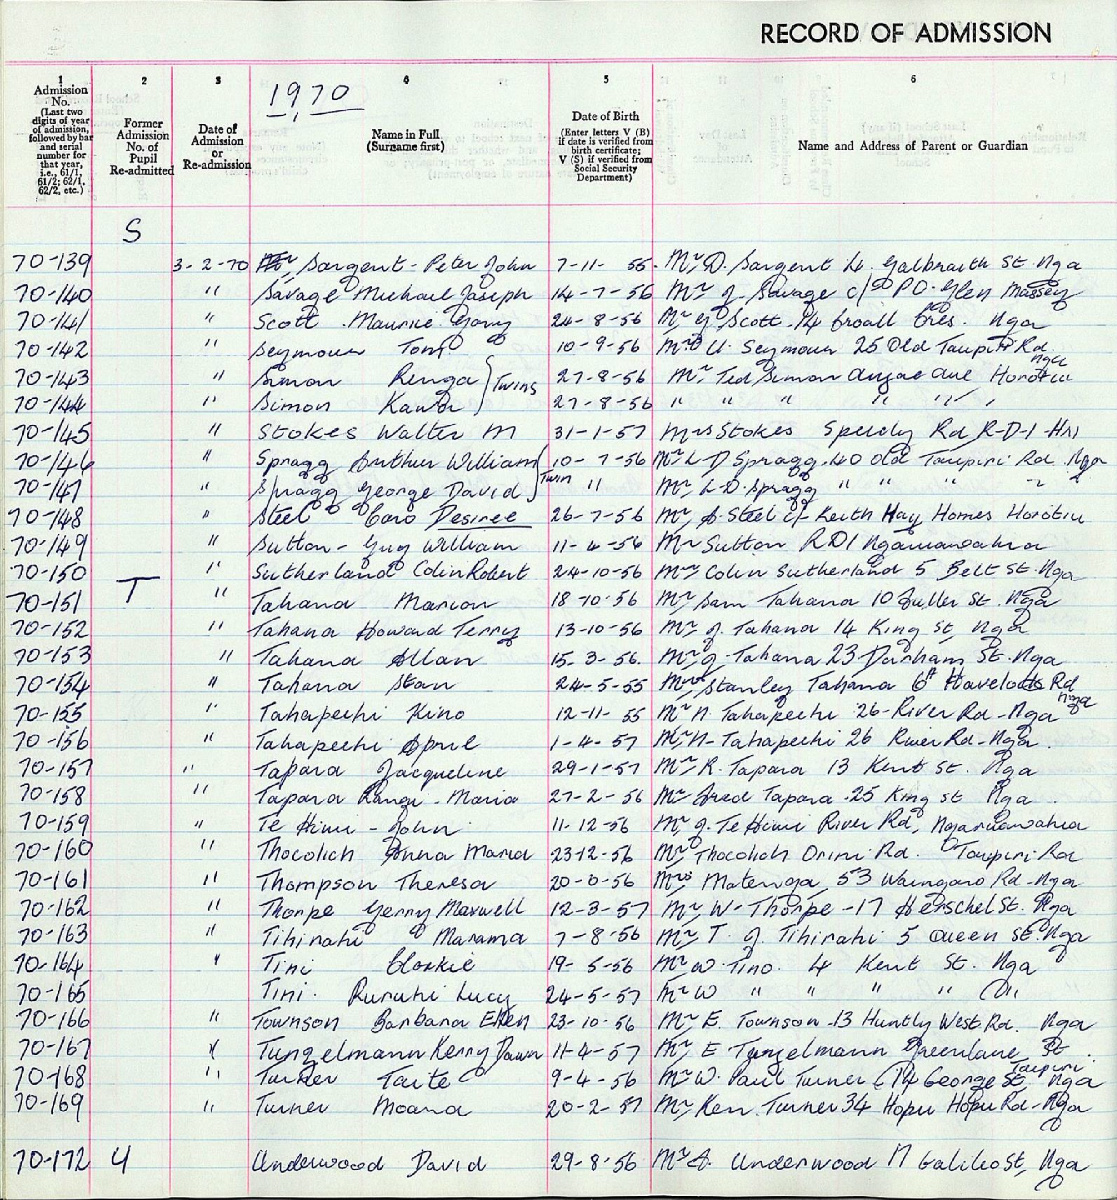 RECORD OF ADMISSION
1 2 3 4 5 6
1970
Admission No. (Last two digits of year of admission, followed by bar and serial number for that year, i.e., 61/1, 61/2; 62/1, 62/2, etc.)
Former Admission No. of Pupil Re-admitted
Date of Admission or Re-admission
Name in Full (Surname first)
Date of Birth (Enter letters V (B) if date is verified from birth certificate; V (S) if verified from Social Security Department.)
Name and Address of Parent or Guardian
S
70-139 3-2-70 Sargent - Peter John 7-11- 55. Mr D. Sargent 4 Galbraith St Nga
70-140 " Savage Michael Joseph 14-7-56 Mr J. Savage c/o P.O. Glen Massey
70-141 " Scott Maurice Gary 24-8-56 Mr G Scott 14 Cres. Nga
70-142 " Seymour Tom 10-9-56 Mr U. Seymour 25 Old Taupiri Rd Nga
70-143 " Simon Renga } Twins 27-8-56 Mr Ted Simon Anzac Ave Horotiu
70-144 " Simon 27-8-56 " " " " " "
70-145 " Stokes Walter M 31-1-57 Mrs Stokes Rd R-D-1-
70-146 " Spragg Arthur William 10-7-56 Mr L D Spragg 40 Old Taupiri Rd Nga
70-147 " Spragg George David } Twin " Mr L.D. Spragg " " " " "
70-148 " Steel Caro Desiree 26-7-56 Mr Steel c/- Keith Hay Homes Horotiu
70-149 " Sutton - Guy William 11-4-56 Mr Sutton RD1 Ngaruawahia
70-150 " Sutherland Colin Robert 24-10-56 Mr Colin Sutherland 5 Belt St. Nga
T
70-151 " Tahana Marion 18-10-56 Mr Sam Tahana 10 Fuller St. Nga
70-152 " Tahana Howard Terry 13-10-56 Mr J. Tahana 14 King St, Nga
70-153 " Tahana Allan 15-3-56. Mr J. Tahana 23 Durham St. Nga
70-154 " Tahana Stan 24-5-55 Stanley Tahana 6A Havelock Rd Nga
70-155 " Tahapeehi Kino 12-11-55 Mr N. Tahapeehi 26-River Rd-Nga
70-156 " Tahapeehi April 1-4-57 Mr N- Tahapeehi 26 River Rd-Nga.
70-157 " Tapara Jacqueline 29-1-57 Mr R. Tapara 13 Kent St. Nga
70-158 " Tapara Rangi - Maria 27-2-56 Mr Fred Tapara 25 King St Nga
70-159 " Te Hiini - John 11-12-56 Mr J. Te Hiini River Rd, Ngaruawahia
70-160 " Thocolich Anna Maria 23-12-56 Mr Thocolich Orini Rd. Taupiri Rd
70-161 " Thompson Theresa 20-6-56 Mrs Matenga 53 Waingaro Rd-Nga
70-162 " Thorpe Gerry Maxwell 12-3-57 Mr W- Thorpe -17 Herschel St. Nga
70-163 " Tihirahi Marama 7-8-56 Mr T. J. Tihirahi 5 Queen St. Nga
70-164 " Tini 19-5-56 Mr W. Tino. 4 Kent St. Nga
70-165 Tini. Ruruhi Lucy 24-5-57 Mr W " " " " "
70-166 " Townson Barbara Ellen 23-10-56 Mr E. Townson 13 Huntly West Rd. Nga
70-167 " Tunzelmann Kerry Dawn 11-4-57 Mr E Tunzelmann Greenlane St. Taupiri
70-168 " Turner Taite 9-4-56 Mr W. Paul Turner 14 George St. Nga
70-169 " Turner Moana 20-2-57 Mr Ken Turner 34 Hopu Hopu Rd-Nga
70-172 U Underwood David 29-8-56 Mr A. Underwood 17 Galileo St, Nga